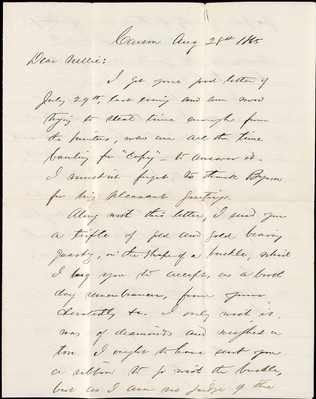 Carson Aug 28th 1865
Dear Nellie:
I got your good letter of
July 29th, last evening and am now
trying to steal time enough from
the printers, who are all the time
wanting for "Copy" - to answer it.
I mustn't forget to thank Byron
for his pleasant greetings.
Along with this letter, I send you
a trifle of gold and gold bearing
quartz, in the shape of a buckle, which
I beg you to accept, as a birth
day remembrance, from yours
devotedly &c. I only wish it
was of diamonds and weighed a
ton. I ought to have sent you
a ribbon to go with the buckle,
but as I am no judge of the